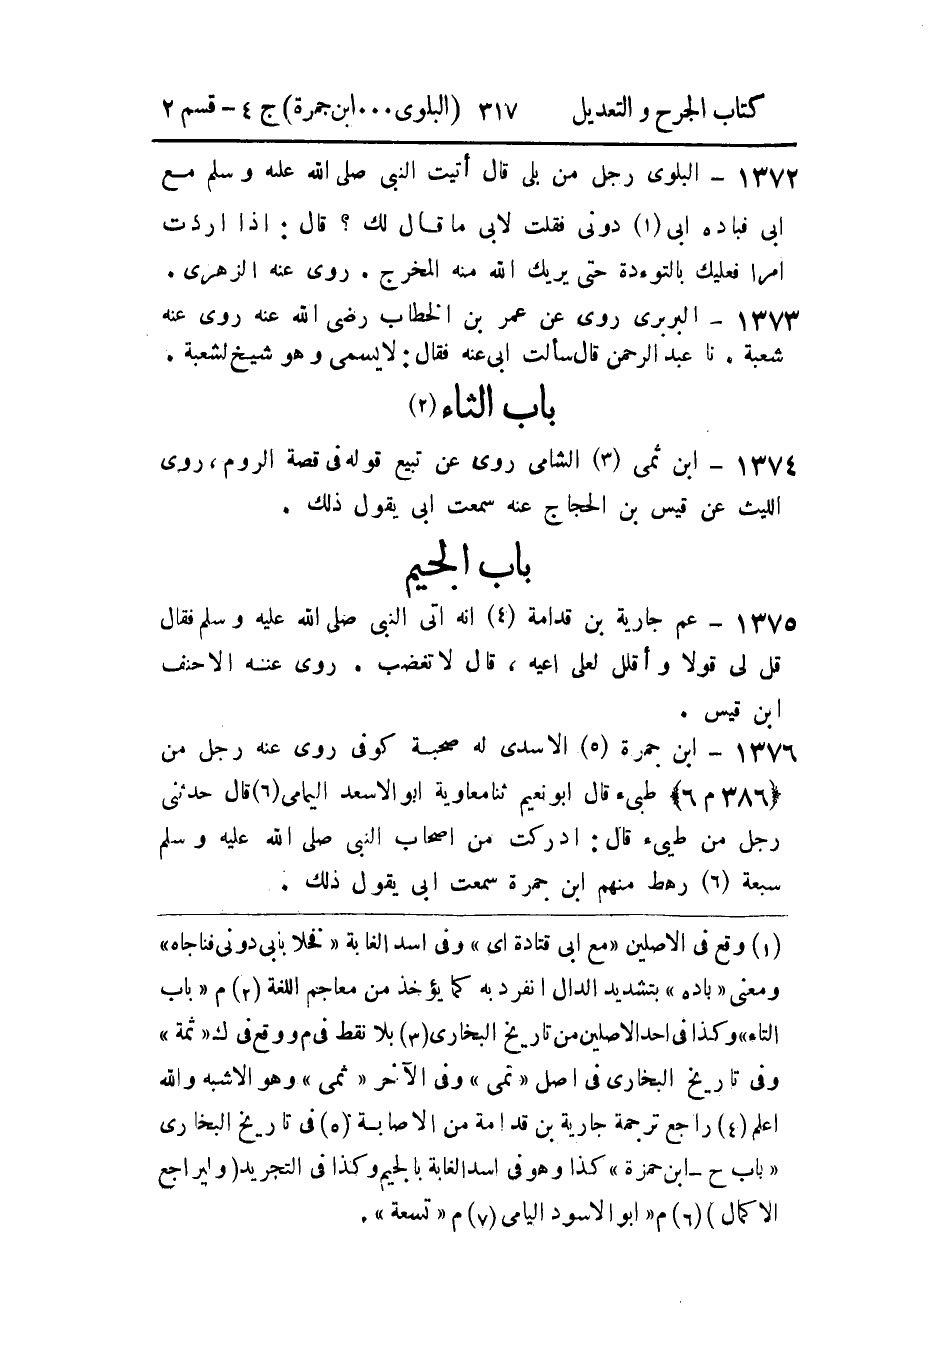 كتاب الجرح و التعديل ٣١٧ (البلوى ٠٠٠ ابن جمرة) ج ٤ - قسم ٢
١٣٧٢ - البلوى رجل من بلى قال أتيت النبى صلى الله عليه و سلم مع
ابى فباده ابى (١) دونى فقلت لابى ما قال لك ؟ قال : اذا اردت
امرا فعليك بالتوءدة حتى يريك الله منه المخرج . روى عنه الزهرى .
١٣٧٣ - البربرى روى عن عمر بن الخطاب رضى الله عنه روى عنه
شعبة . نا عبد الرحمن قال سألت ابى عنه فقال : لايسمى و هو شيخ لشعبة .
باب الثاء (٢)
١٣٧٤ - ابن ثمى (٣) الشامى روى عن تبيع قوله فى قصة الروم ، روى
الليث عن قيس بن الحجاج عنه سمعت ابى يقول ذلك .
باب الجيم
١٣٧٥ - عم جارية بن قدامة (٤) انه اتى النبى صلى الله عليه و سلم فقال
قل لى قولا و أقلل لعلى اعيه ، قال لا تغضب . روى عنه الاحنف
ابن قيس .
١٣٧٦ - ابن جمرة (٥) الاسدى له صحبة كوفى روى عنه رجل من
﴿٣٨٦ م ٦﴾ طيىء قال ابو نعيم ثنا معاوية ابو الاسعد اليامى (٦) قال حدثنى
رجل من طيىء قال : ادركت من اصحاب النبى صلى الله عليه و سلم
سبعة (٦) رهط منهم ابن جمرة سمعت ابى يقول ذلك .
(١) وقع فى الاصلين «مع ابى قتادة اى» وفى اسد الغابة «فخلا بابى دونى فناجاه»
ومعنى «باده» بتشديد الدال انفرد به كما يؤخذ من معاجم اللغة (٢) م «باب
التاء» وكذا فى احد الاصلين من تاريخ البخارى (٣) بلا نقط فى م ووقع فى ك «ثمة»
وفى تاريخ البخارى فى اصل «تمى» وفى الآخر «ثمى» وهو الاشبه والله
اعلم (٤) راجع ترجمة جارية بن قدامة من الاصابة (٥) فى تاريخ البخارى
«باب ح - ابن حمزة» كذا وهو فى اسد الغابة بالجيم وكذا فى التجريد (وليراجع
الاكمال) (٦) م «ابو الاسود اليامى (٧) م «تسعة» .